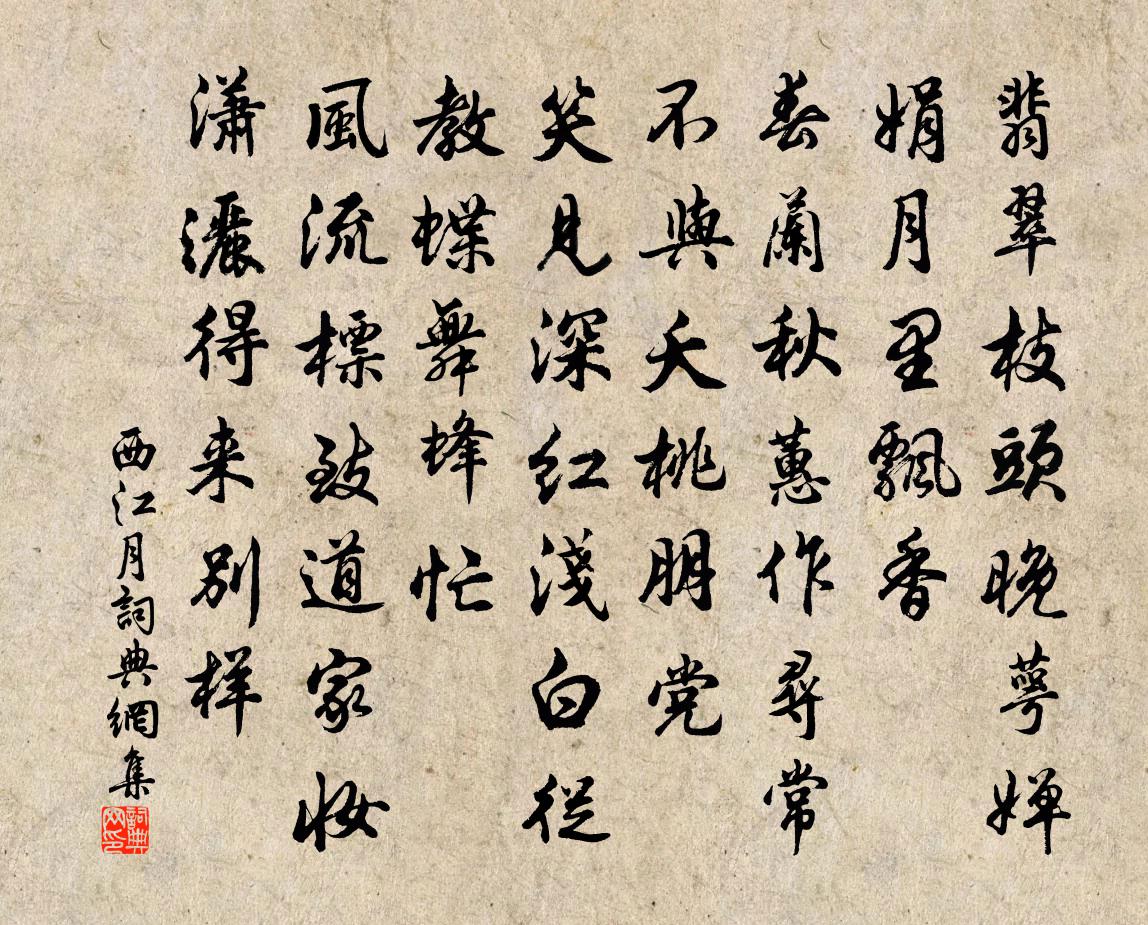 翡翠枝頭晚萼婵
娟月里飄香
春蘭秋蕙作尋常
不與夭桃朋党
笑見深红淺白從
教蝶舞蜂忙
風流標致道家妆
瀟灑得来别样
西江月詞典網集
詞典
网印